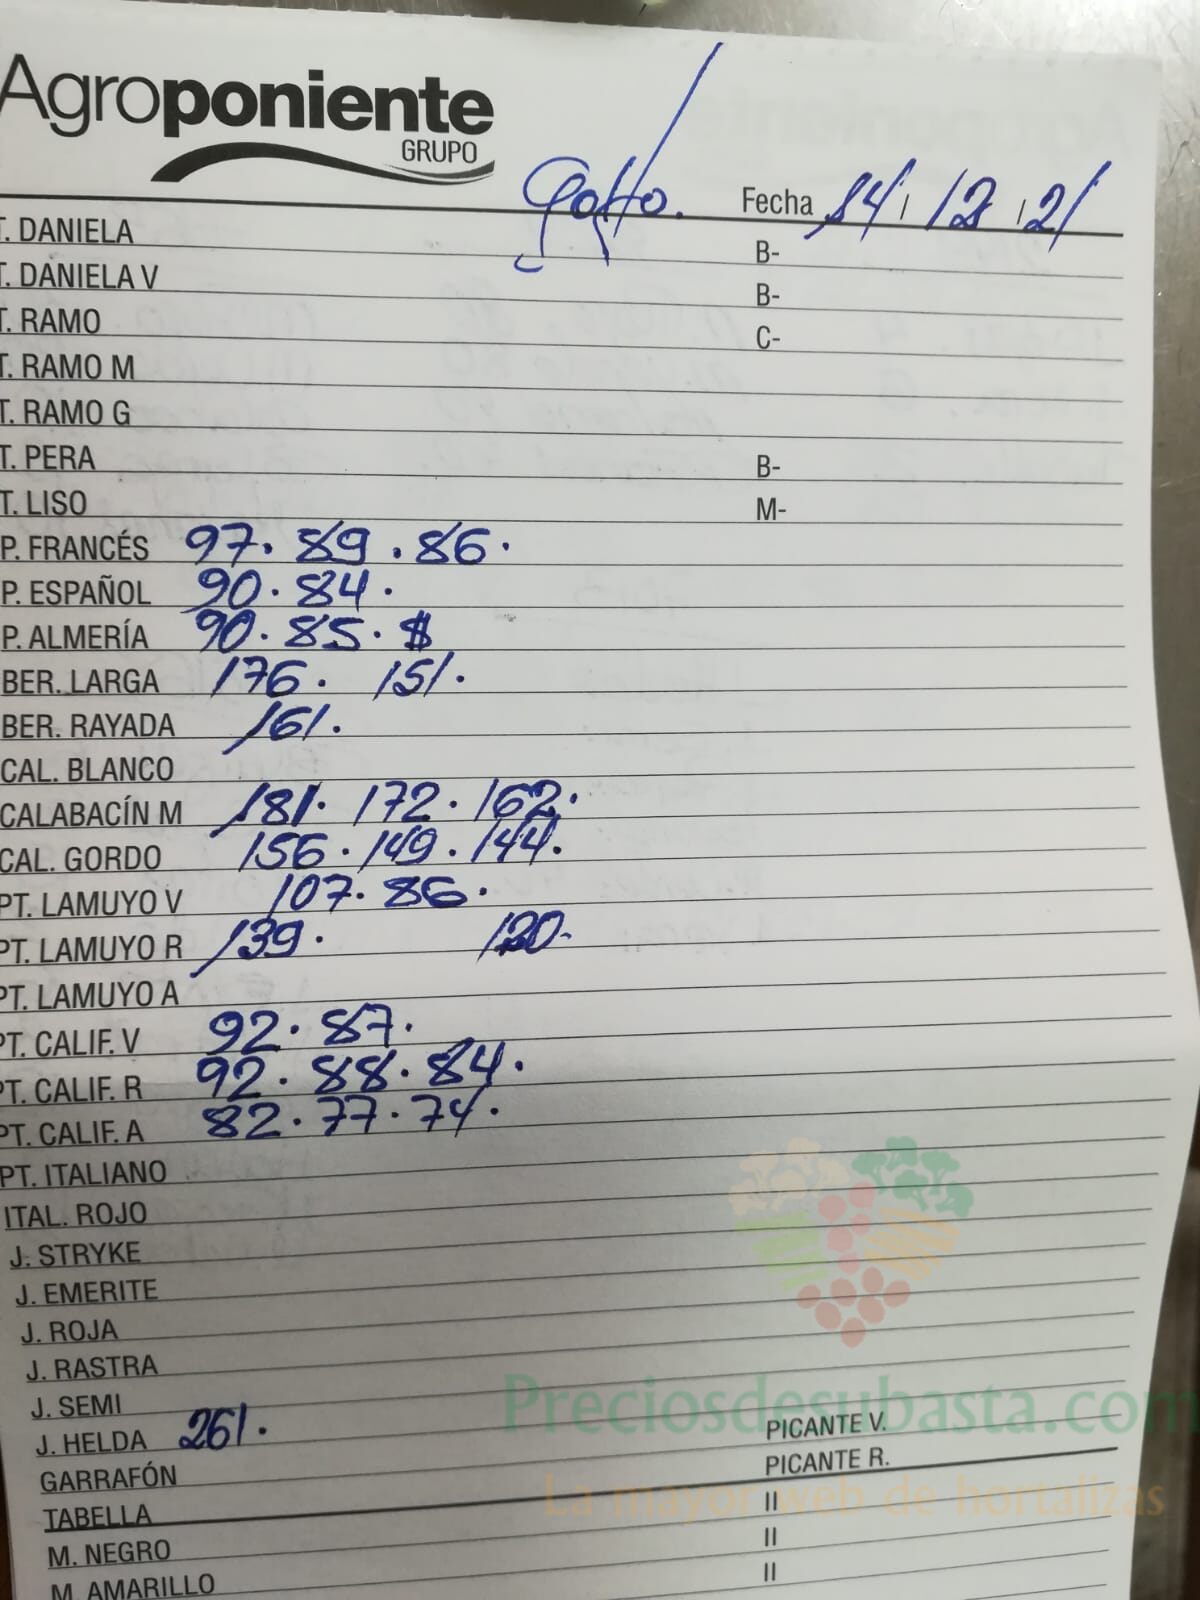 Agroponiente
GRUPO
Fecha 14/12/21
T. DANIELA B-
T. DANIELA V B-
T. RAMO C-
T. RAMO M
T. RAMO G
T. PERA B-
T. LISO M-
P. FRANCÉS 97. 89. 86.
P. ESPAÑOL 90. 84.
P. ALMERÍA 90. 85.
BER. LARGA 176. 151.
BER. RAYADA 161.
CAL. BLANCO
CALABACÍN M 181. 172. 162.
CAL. GORDO 156. 149. 144.
PT. LAMUYO V 107. 86.
PT. LAMUYO R 139. 120.
PT. LAMUYO A
PT. CALIF. V 92. 87.
PT. CALIF. R 92. 88. 84.
PT. CALIF. A 82. 77. 74.
PT. ITALIANO
ITAL. ROJO
J. STRYKE
J. EMERITE
J. ROJA
J. RASTRA
J. SEMI
J. HELDA 261. PICANTE V.
GARRAFÓN PICANTE R.
TABELLA II
M. NEGRO II
M. AMARILLO II
Preciosdesubasta.com
La mayor web de hortalizas